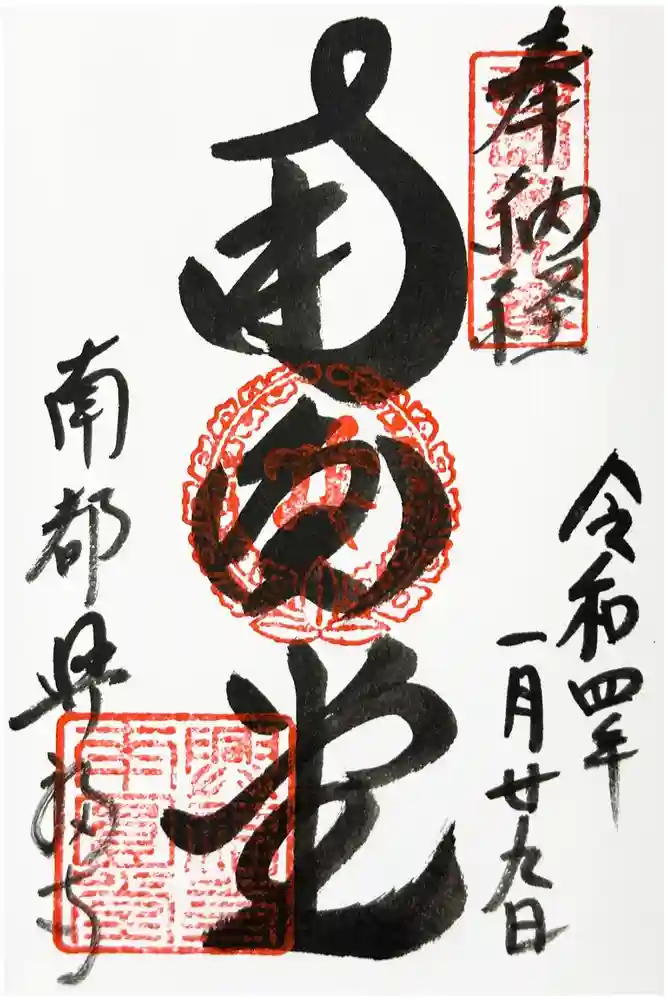 奉納経
令和四年
一月廿九日
南円堂
南都興福寺